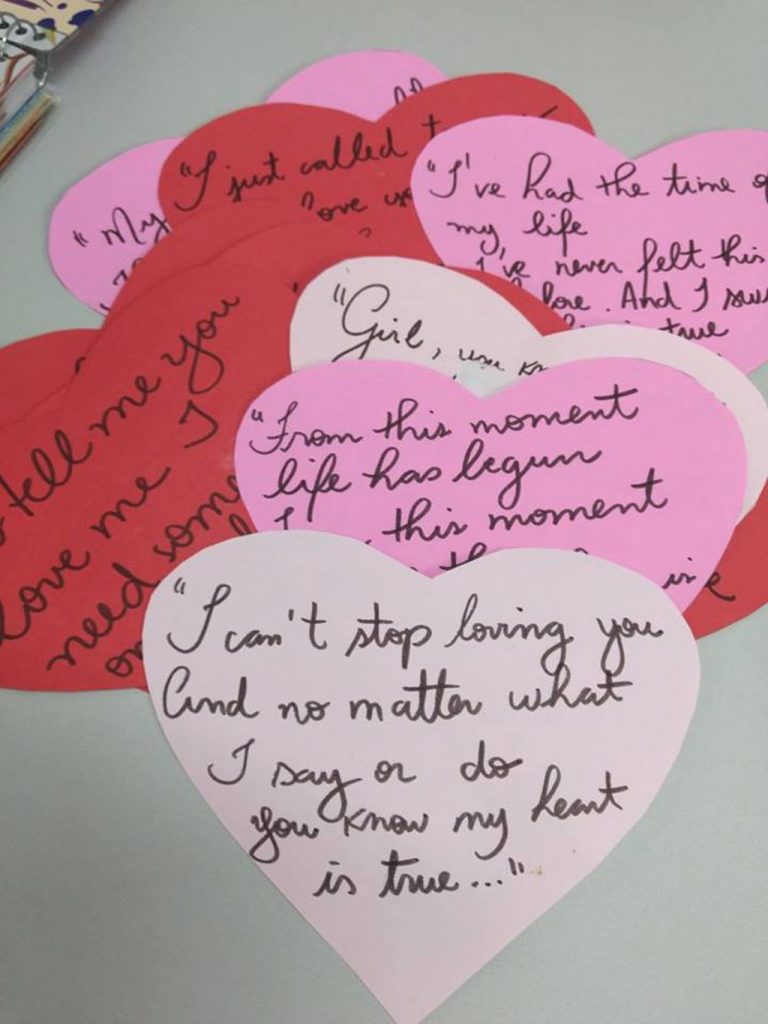 "My
"I just called t
love
"I've had the time o
my life
I've never felt this
fore. And I sw
true
"Girl, you kn
tell me you
love me I
need some
on
"From this moment
life has begun
this moment
is
"I can't stop loving you
And no matter what
I say or do
you know my heart
is true..."